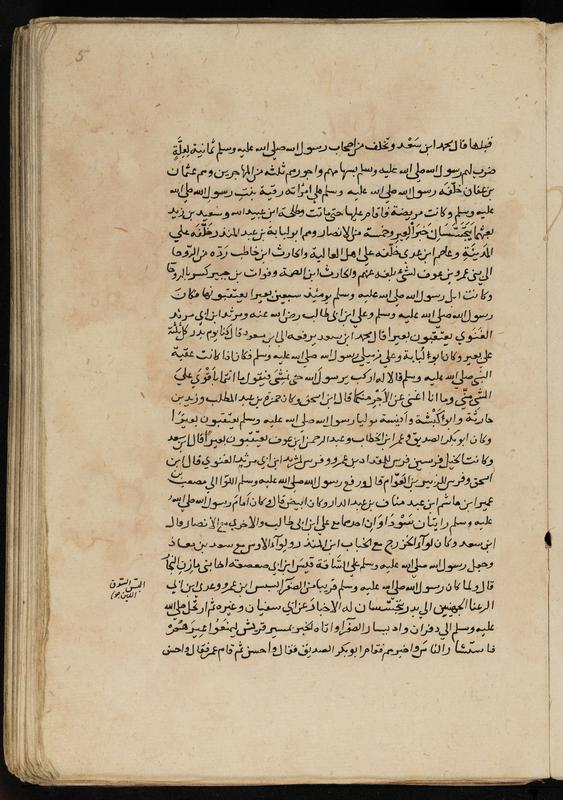 5
قبلها قال محمد ابن سعد وتخلف من اصحاب رسول الله صلى الله عليه وسلم ثمانية لعلة
ضرب لهم رسول الله صلى الله عليه وسلم بسهامهم واجورهم ثلثة من المهاجرين وهم عثمان
بن عفان خلفه رسول الله صلى الله عليه وسلم على امراته رقية بنت رسول الله صلى الله
عليه وسلم وكانت مريضة فاقام عليها حتى ماتت وطلحة ابن عبيد الله وسعيد بن زيد
بعثهما يتجسسان خبر العير وخمسة من الانصار وهم ابو لبابة بن عبد المنذر خلفه على
المدينة وعاصم ابن عدي خلفه على اهل العالية والحارث ابن حاطب رده من الروحا
الى بني عمرو بن عوف لشئ بلغه عنهم والحارث ابن الصمة وخوات بن جبير كسر بالروحا
وكانت ابل رسول الله صلى الله عليه وسلم يومئذ سبعين بعيرا يعتقبونها فكان
رسول الله صلى الله عليه وسلم وعلي ابن ابي طالب رضي الله عنه ومرثد ابن ابي مرثد
الغنوي يعتقبون بعيرا قال محمد ابن سعد يرفعه الى ابن مسعود قال كنا يوم بدر كل ثلثة
على بعير وكان ابو لبابة وعلي زميلي رسول الله صلى الله عليه وسلم فكان اذا كانت عقبة
النبي صلى الله عليه وسلم قالا له اركب يرسول الله حتى نمشي فيقول ما انتما باقوى على
المشي مني وما انا اغنى عن الاجر منكما قال ابن اسحق وكان حمزة بن عبد المطلب وزيد بن
حارثة وابو كبشة وانسة موليا رسول الله صلى الله عليه وسلم يعتقبون بعيرا
وكان ابو بكر الصديق وعمر ابن الخطاب وعبد الرحمن ابن عوف يعتقبون بعيرا قال ابن سعد
وكانت الخيل فرسين فرس للمقداد بن عمرو وفرس لمرثد ابن ابي مرثد الغنوي قال ابن
اسحق وفرس للزبير بن العوام قال ورفع رسول الله صلى الله عليه وسلم اللوا الى مصعب بن
عمير ابن هاشم ابن عبد مناف بن عبد الدار وكان ابيض قال وكان امام رسول الله صلى الله
عليه وسلم رايتان سوداوان احدهما مع علي ابن ابي طالب والاخرى مع الانصار وقال
ابن سعد وكان لوآء الخزرج مع الحباب ابن المنذر ولوآء الاوس مع سعد بن معاذ
وجعل رسول الله صلى الله عليه وسلم على الساقة قيس ابن ابي صعصعة اخا بني مازن ابن النجار
قال ولما كان رسول الله صلى الله عليه وسلم قريبا من الصفرا بسبس ابن عمرو وعدي ابن ابي
الزغبا الجهنيين الى بدر يتجسسان له الاخبار عن ابي سفيان وغيره ثم ارتحل صلى الله
عليه وسلم الى دفران واد يسار الصفرا واتاه الخبر بمسير قريش ليمنعوا عيرهم
فاستشار الناس واخبرهم فقام ابو بكر الصديق فقال واحسن ثم قام عمر فقال واحسن